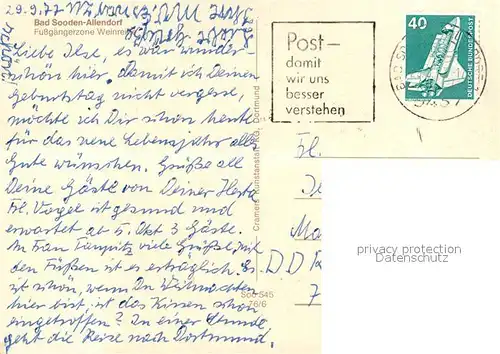 29.9.77
Bad Sooden-Allendorf
Fußgängerzone Weinreihe
Liebe Ilse, es war wunder
schön hier. Damit ich Deinen
Geburtstag nicht vergesse,
möchte ich Dir schon heute
für das neue Lebensjahr alles
Gute wünschen. Grüße all
Deine Gäste von Deiner Herta
Frl. Vogel ist gesund und
erwartet ab 5. Okt 3 Gäste.
An Frau viele Grüße, mit
den Füßen ist es erträglich. Es
ist schön, wenn Du Weihnachten
hier bist. ist das Kissen schon
eingetroffen? In einer Stunde
geht die Reise nach Dortmund.
Cramers Kunstanstalt KG, Dortmund
Soo 545
76/6
Post-
damit
wir uns
besser
verstehen
40
DEUTSCHE BUNDESPOST
BAD SO
Frl.
DDR
7
privacy protection
Datenschutz